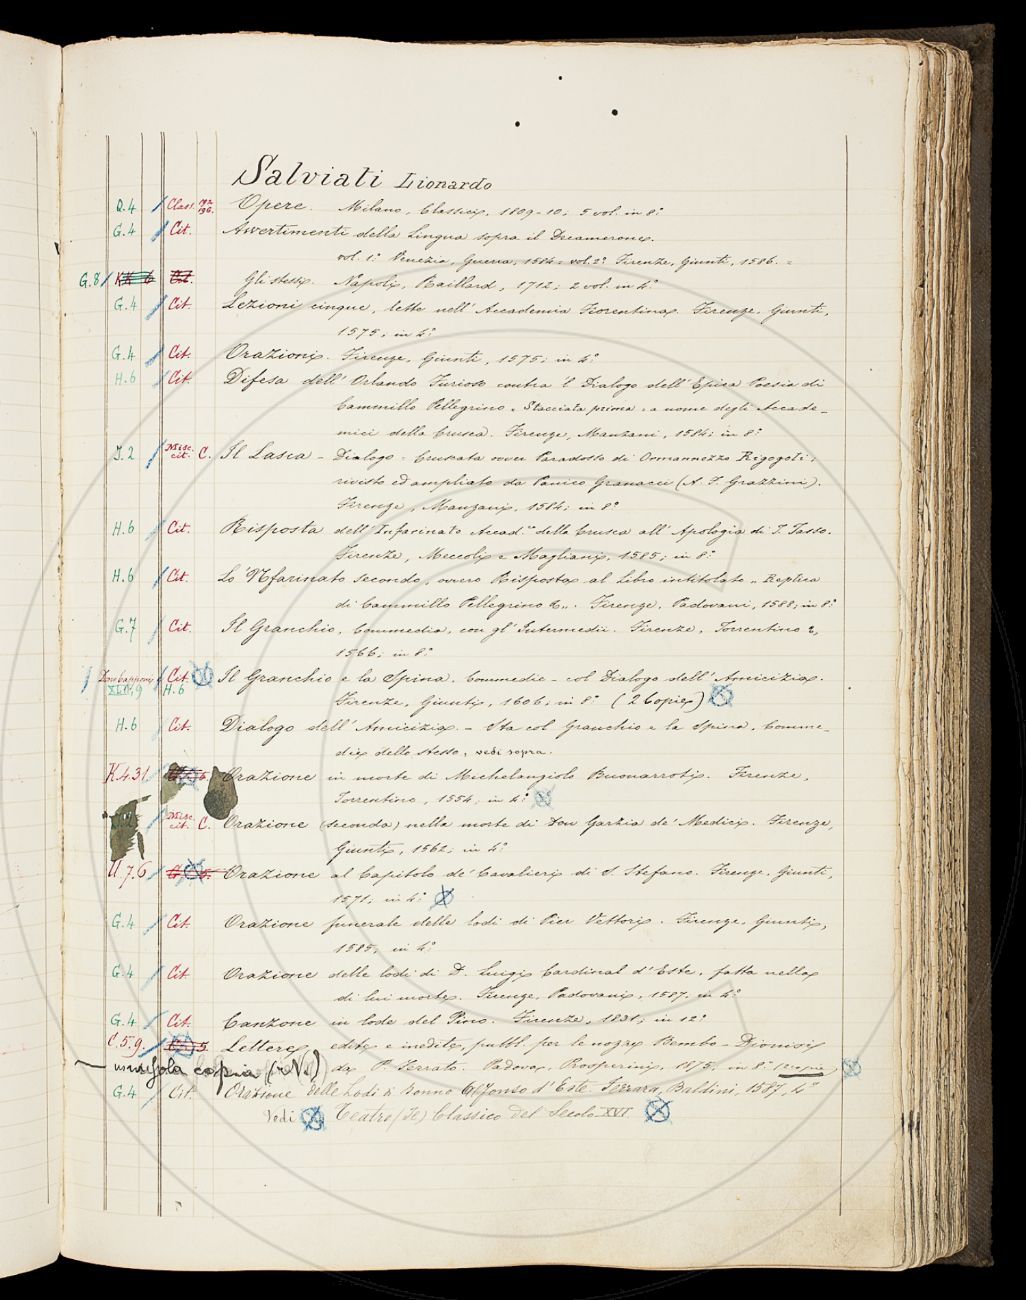 Salviati Lionardo
Q.4 Class. Opere. Milano, Classici, 1809-10; 5 vol. in 8º
G.4 Cit. Avvertimenti della Lingua sopra il Decamerone.
vol. 1º Venezia, Guerra, 1584 = vol. 2º Firenze, Giunti, 1586. =
G.8 Gli stessi. Napoli, Raillard, 1712; 2 vol. in 4º
G.4 Cit. Lezioni cinque, lette nell' Accademia Fiorentina. Firenze, Giunti,
1575; in 4º
G.4 Cit. Orazioni. Firenze, Giunti, 1575; in 4º
H.6 Cit. Difesa dell' Orlando Furioso contra 'l Dialogo dell' Epica Poesia di
Cammillo Pellegrino, Stacciata prima, a nome degli Accade-
mici della Crusca. Firenze, Manzani, 1584; in 8º
I.2 Misc. cit. C. Il Lasca - Dialogo = Cruscata ovver Paradosso di Ormannozzo Rigogoli;
rivisto ed ampliato da Panico Granacci (A. F. Grazzini).
Firenze, Manzani, 1584; in 8º
H.6 Cit. Risposta dell' Infarinato Accad.º della Crusca all' Apologia di T. Tasso.
Firenze, Meccoli e Magliani, 1585; in 8º
H.6 Cit. Lo 'Nfarinato secondo, ovvero Risposta al Libro intitolato „ Replica
di Cammillo Pellegrino &„. Firenze, Padovani, 1588; in 8º
G.7 Cit. Il Granchio, Commedia, con gl' Intermedii. Firenze, Torrentino &,
1566; in 8º
Cit. H.6 Il Granchio e la Spina. Commedie - col Dialogo dell' Amicizia.
Firenze, Giunti, 1606; in 8º (2 Copie)
H.6 Cit. Dialogo dell' Amicizia. - Sta col Granchio e la Spina, Comme-
die dello stesso, vedi sopra.
K.4.31. Orazione in morte di Michelangiolo Buonarroti. Firenze,
Torrentino, 1554; in 4º
Misc. cit. C. Orazione (seconda) nella morte di Don Garzia de' Medici. Firenze,
Giunti, 1562; in 4º
U.7.6 Orazione al Capitolo de' Cavalieri di S. Stefano. Firenze, Giunti,
1571; in 4º
G.4 Cit. Orazione funerale delle lodi di Pier Vettori. Firenze, Giunti,
1585; in 4º
G.4 Cit. Orazione delle lodi di D. Luigi Cardinal d'Este, fatta nella
di lui morte. Firenze, Padovani, 1587. in 4º
G.4 Cit. Canzone in lode del Pino. Firenze, 1831; in 12º
C.5.9. Lettere edite e inedite, pubbl. per le nozze Bembo-Dionisi
da P. Ferrato. Padova, Prosperini, 1875; in 8º 1 copia
copia
G.4 Cit. Orazione delle Lodi di Donno Alfonso d'Este. Ferrara, Baldini, 1587, 4º
Vedi Teatro (Il) Classico del Secolo XVI